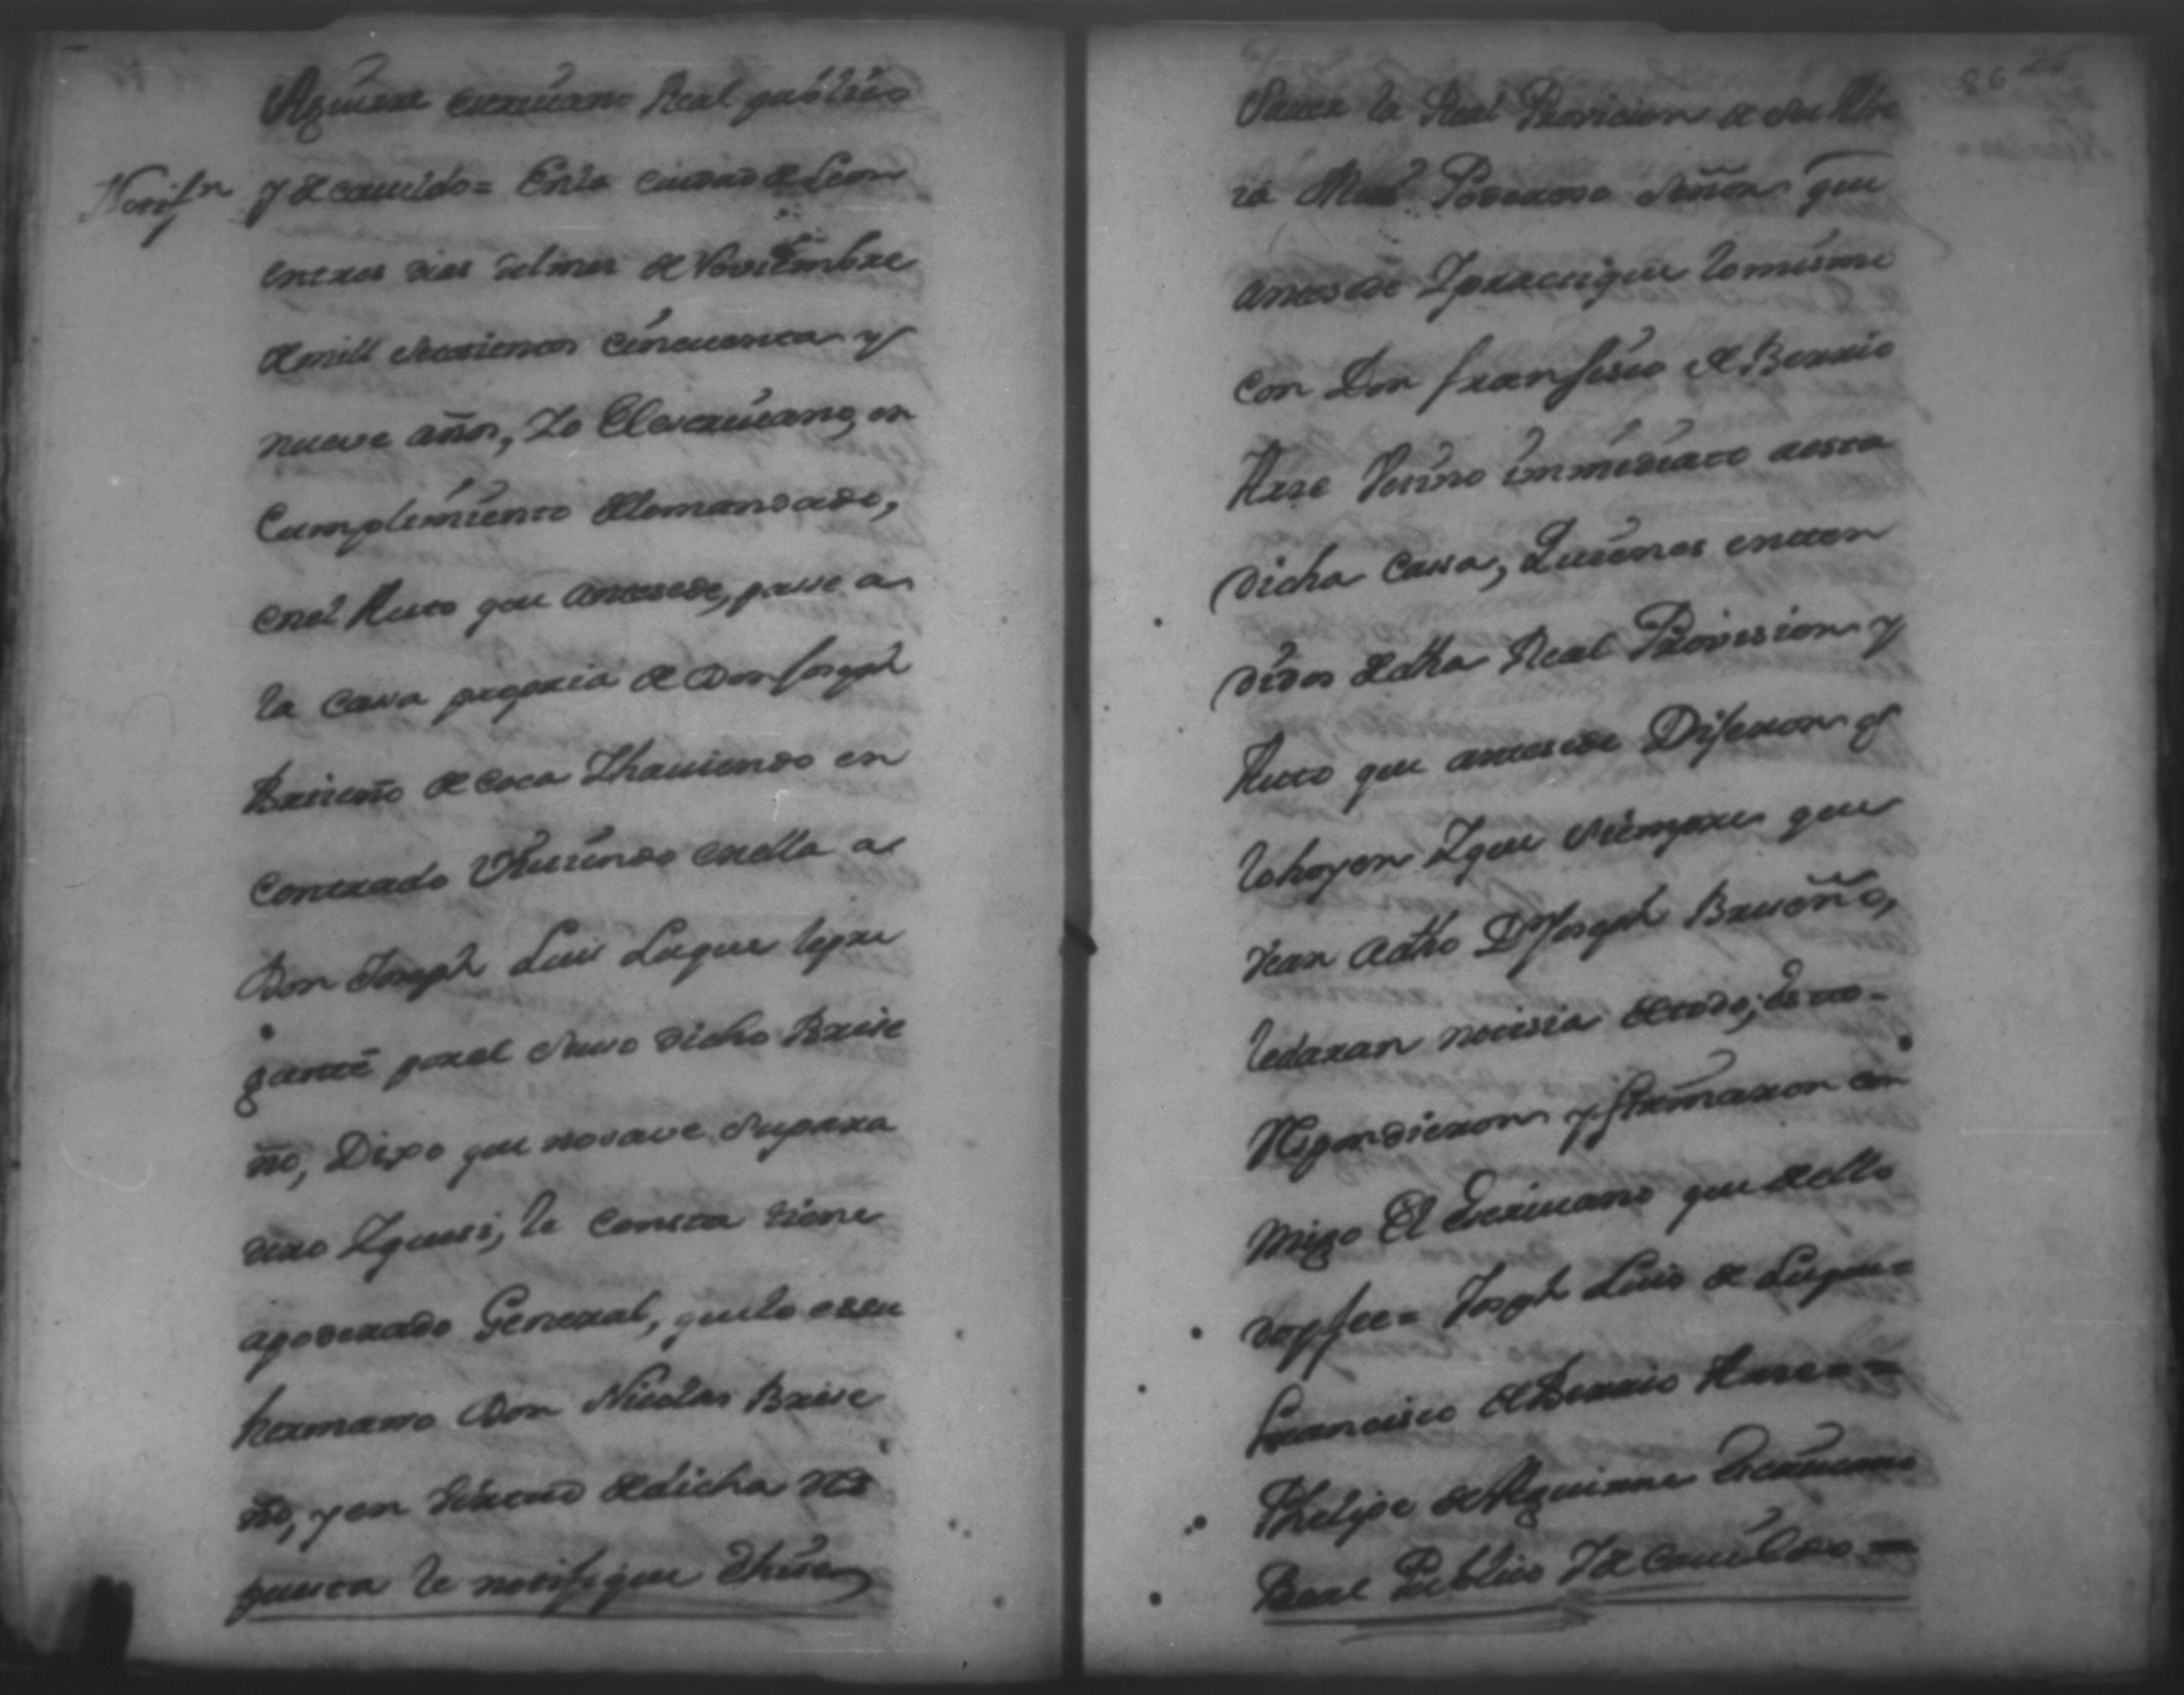 Aguirre escrivano Real publico
Notifn y de cavildo = En la ciudad de Leon
en tres dias del mes de Noviembre
de mill setesientos cinquenta y
nueve años, Yo El escrivano, en
Cumplimiento de lo mandado,
en el Auto que antesede, passe a
la casa propria de Don Joseph
Briseño de Coca Y haviendo en
contrado Viviendo en ella a
Don Joseph Luis Luque le pre
gunté por el suso dicho Brise
ño, Dixo que no save su para
dero Y que si, le consta tiene
apoderado General, que lo es su
hermano Don Nicolas Brise
ño, y en de dicha Res
puesta le notifique Y hise
Saver la Real Provicion de su Alte
za Muy Poderoso Señor que
antesede Y practique lo mismo
con Don Fransisco de Berrio
Arze Vesino immediato a esta
dicha Cassa, Quienes enten
didos de dha Real Provision y
Auto que antesede Dijeron q
lo hoyen Y que siempre que
vean a dho Dn Joseph Briseño,
le daran notisia de todo; Esto
Respondieron y firmaron con
migo El Escrivano que de ello
doy fee = Joseph Luis de Luque =
Francisco de Berrio Arze =
Phelipe de Aguirre Escrivano
Real Publico Y de Cavildo =
86 25